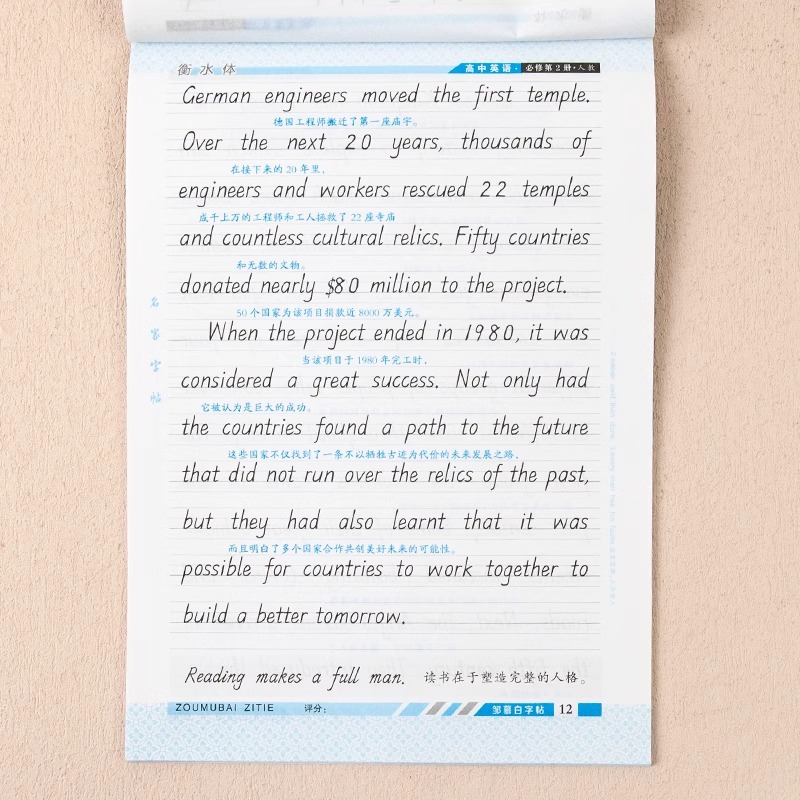 衡水体
高中英语·必修第2册·人教
German engineers moved the first temple.
德国工程师搬迁了第一座庙宇。
Over the next 20 years, thousands of
在接下来的 20 年里，
engineers and workers rescued 22 temples
成千上万的工程师和工人拯救了 22 座寺庙
and countless cultural relics. Fifty countries
和无数的文物。
donated nearly $80 million to the project.
50 个国家为该项目捐款近 8000 万美元。
When the project ended in 1980, it was
当该项目于 1980 年完工时，
considered a great success. Not only had
它被认为是巨大的成功。
the countries found a path to the future
这些国家不仅找到了一条不以牺牲古迹为代价的未来发展之路，
that did not run over the relics of the past,
but they had also learnt that it was
而且明白了多个国家合作共创美好未来的可能性。
possible for countries to work together to
build a better tomorrow.
Reading makes a full man. 读书在于塑造完整的人格。
名家字帖
ZOUMUBAI ZITIE 评分：
邹慕白字帖 12